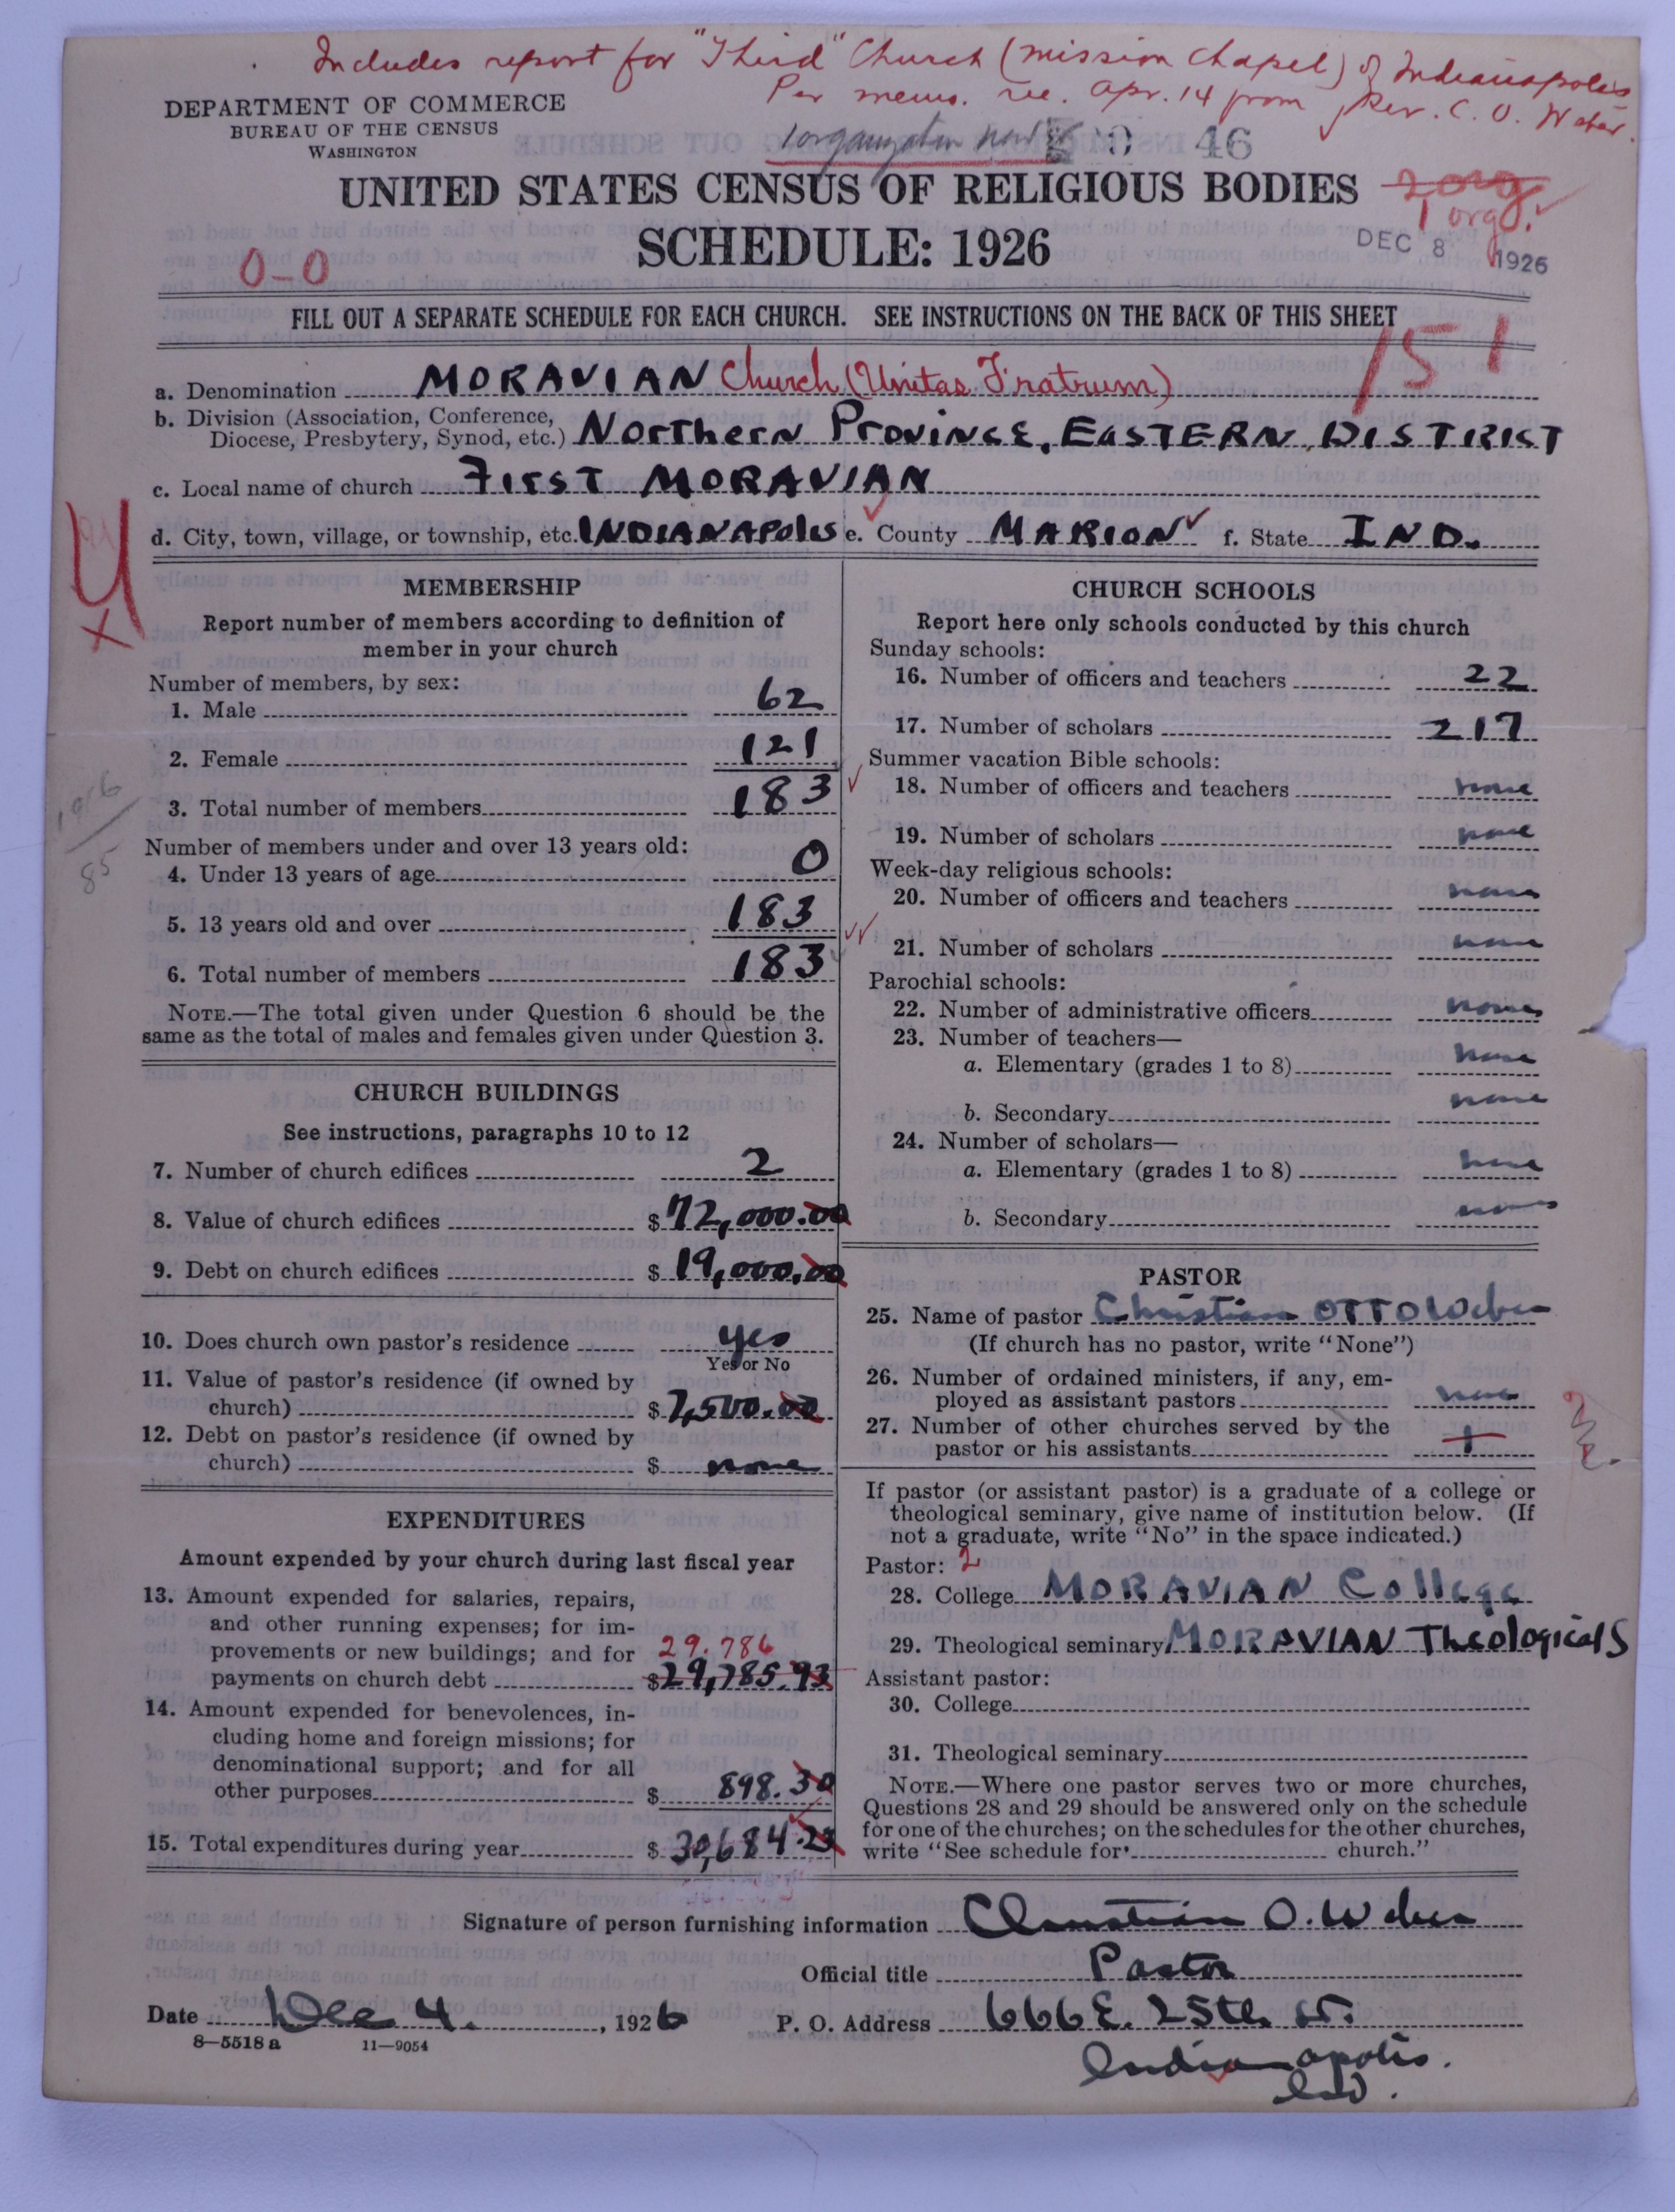 Includes report for "Third" Church (mission chapel) of Indianapolis
Per memo. rec. Apr. 14 from Rev. C. O. Weber.
DEPARTMENT OF COMMERCE
BUREAU OF THE CENSUS
WASHINGTON
1 organization now
46
UNITED STATES CENSUS OF RELIGIOUS BODIES
2 org
1 org.
SCHEDULE: 1926
DEC 8 1926
0-0
FILL OUT A SEPARATE SCHEDULE FOR EACH CHURCH. SEE INSTRUCTIONS ON THE BACK OF THIS SHEET
151
a. Denomination MORAVIAN Church (Unitas Fratrum)
b. Division (Association, Conference, Diocese, Presbytery, Synod, etc.) Northern Province, EASTERN DISTRICT
c. Local name of church FIRST MORAVIAN
d. City, town, village, or township, etc. INDIANAPOLIS e. County MARION f. State IND.
MEMBERSHIP
Report number of members according to definition of
member in your church
Number of members, by sex:
1. Male 62
2. Female 121
3. Total number of members 183
Number of members under and over 13 years old:
4. Under 13 years of age 0
5. 13 years old and over 183
6. Total number of members 183
NOTE.—The total given under Question 6 should be the
same as the total of males and females given under Question 3.
85
CHURCH BUILDINGS
See instructions, paragraphs 10 to 12
7. Number of church edifices 2
8. Value of church edifices $72,000.00
9. Debt on church edifices $19,000.00
10. Does church own pastor's residence yes
Yes or No
11. Value of pastor's residence (if owned by
church) $7,500.00
12. Debt on pastor's residence (if owned by
church) $ none
EXPENDITURES
Amount expended by your church during last fiscal year
13. Amount expended for salaries, repairs,
and other running expenses; for im-
provements or new buildings; and for 29.786
payments on church debt $29,785.93
14. Amount expended for benevolences, in-
cluding home and foreign missions; for
denominational support; and for all
other purposes $ 898.30
15. Total expenditures during year $ 30,684.23
CHURCH SCHOOLS
Report here only schools conducted by this church
Sunday schools:
16. Number of officers and teachers 22
17. Number of scholars 217
Summer vacation Bible schools:
18. Number of officers and teachers none
19. Number of scholars none
Week-day religious schools:
20. Number of officers and teachers none
21. Number of scholars none
Parochial schools:
22. Number of administrative officers none
23. Number of teachers—
a. Elementary (grades 1 to 8) none
b. Secondary none
24. Number of scholars—
a. Elementary (grades 1 to 8) none
b. Secondary none
PASTOR
25. Name of pastor Christian OTTO Weber
(If church has no pastor, write "None")
26. Number of ordained ministers, if any, em-
ployed as assistant pastors none
27. Number of other churches served by the
pastor or his assistants 1
If pastor (or assistant pastor) is a graduate of a college or
theological seminary, give name of institution below. (If
not a graduate, write "No" in the space indicated.)
Pastor: 2
28. College MORAVIAN College
29. Theological seminary MORAVIAN Theological S
Assistant pastor:
30. College
31. Theological seminary
NOTE.—Where one pastor serves two or more churches,
Questions 28 and 29 should be answered only on the schedule
for one of the churches; on the schedules for the other churches,
write "See schedule for church."
Signature of person furnishing information Christian O. Weber
Official title Pastor
Date Dec 4. , 1926 P. O. Address 666 E. 25th St.
8—5518 a 11—9054
Indianapolis.
Ind.